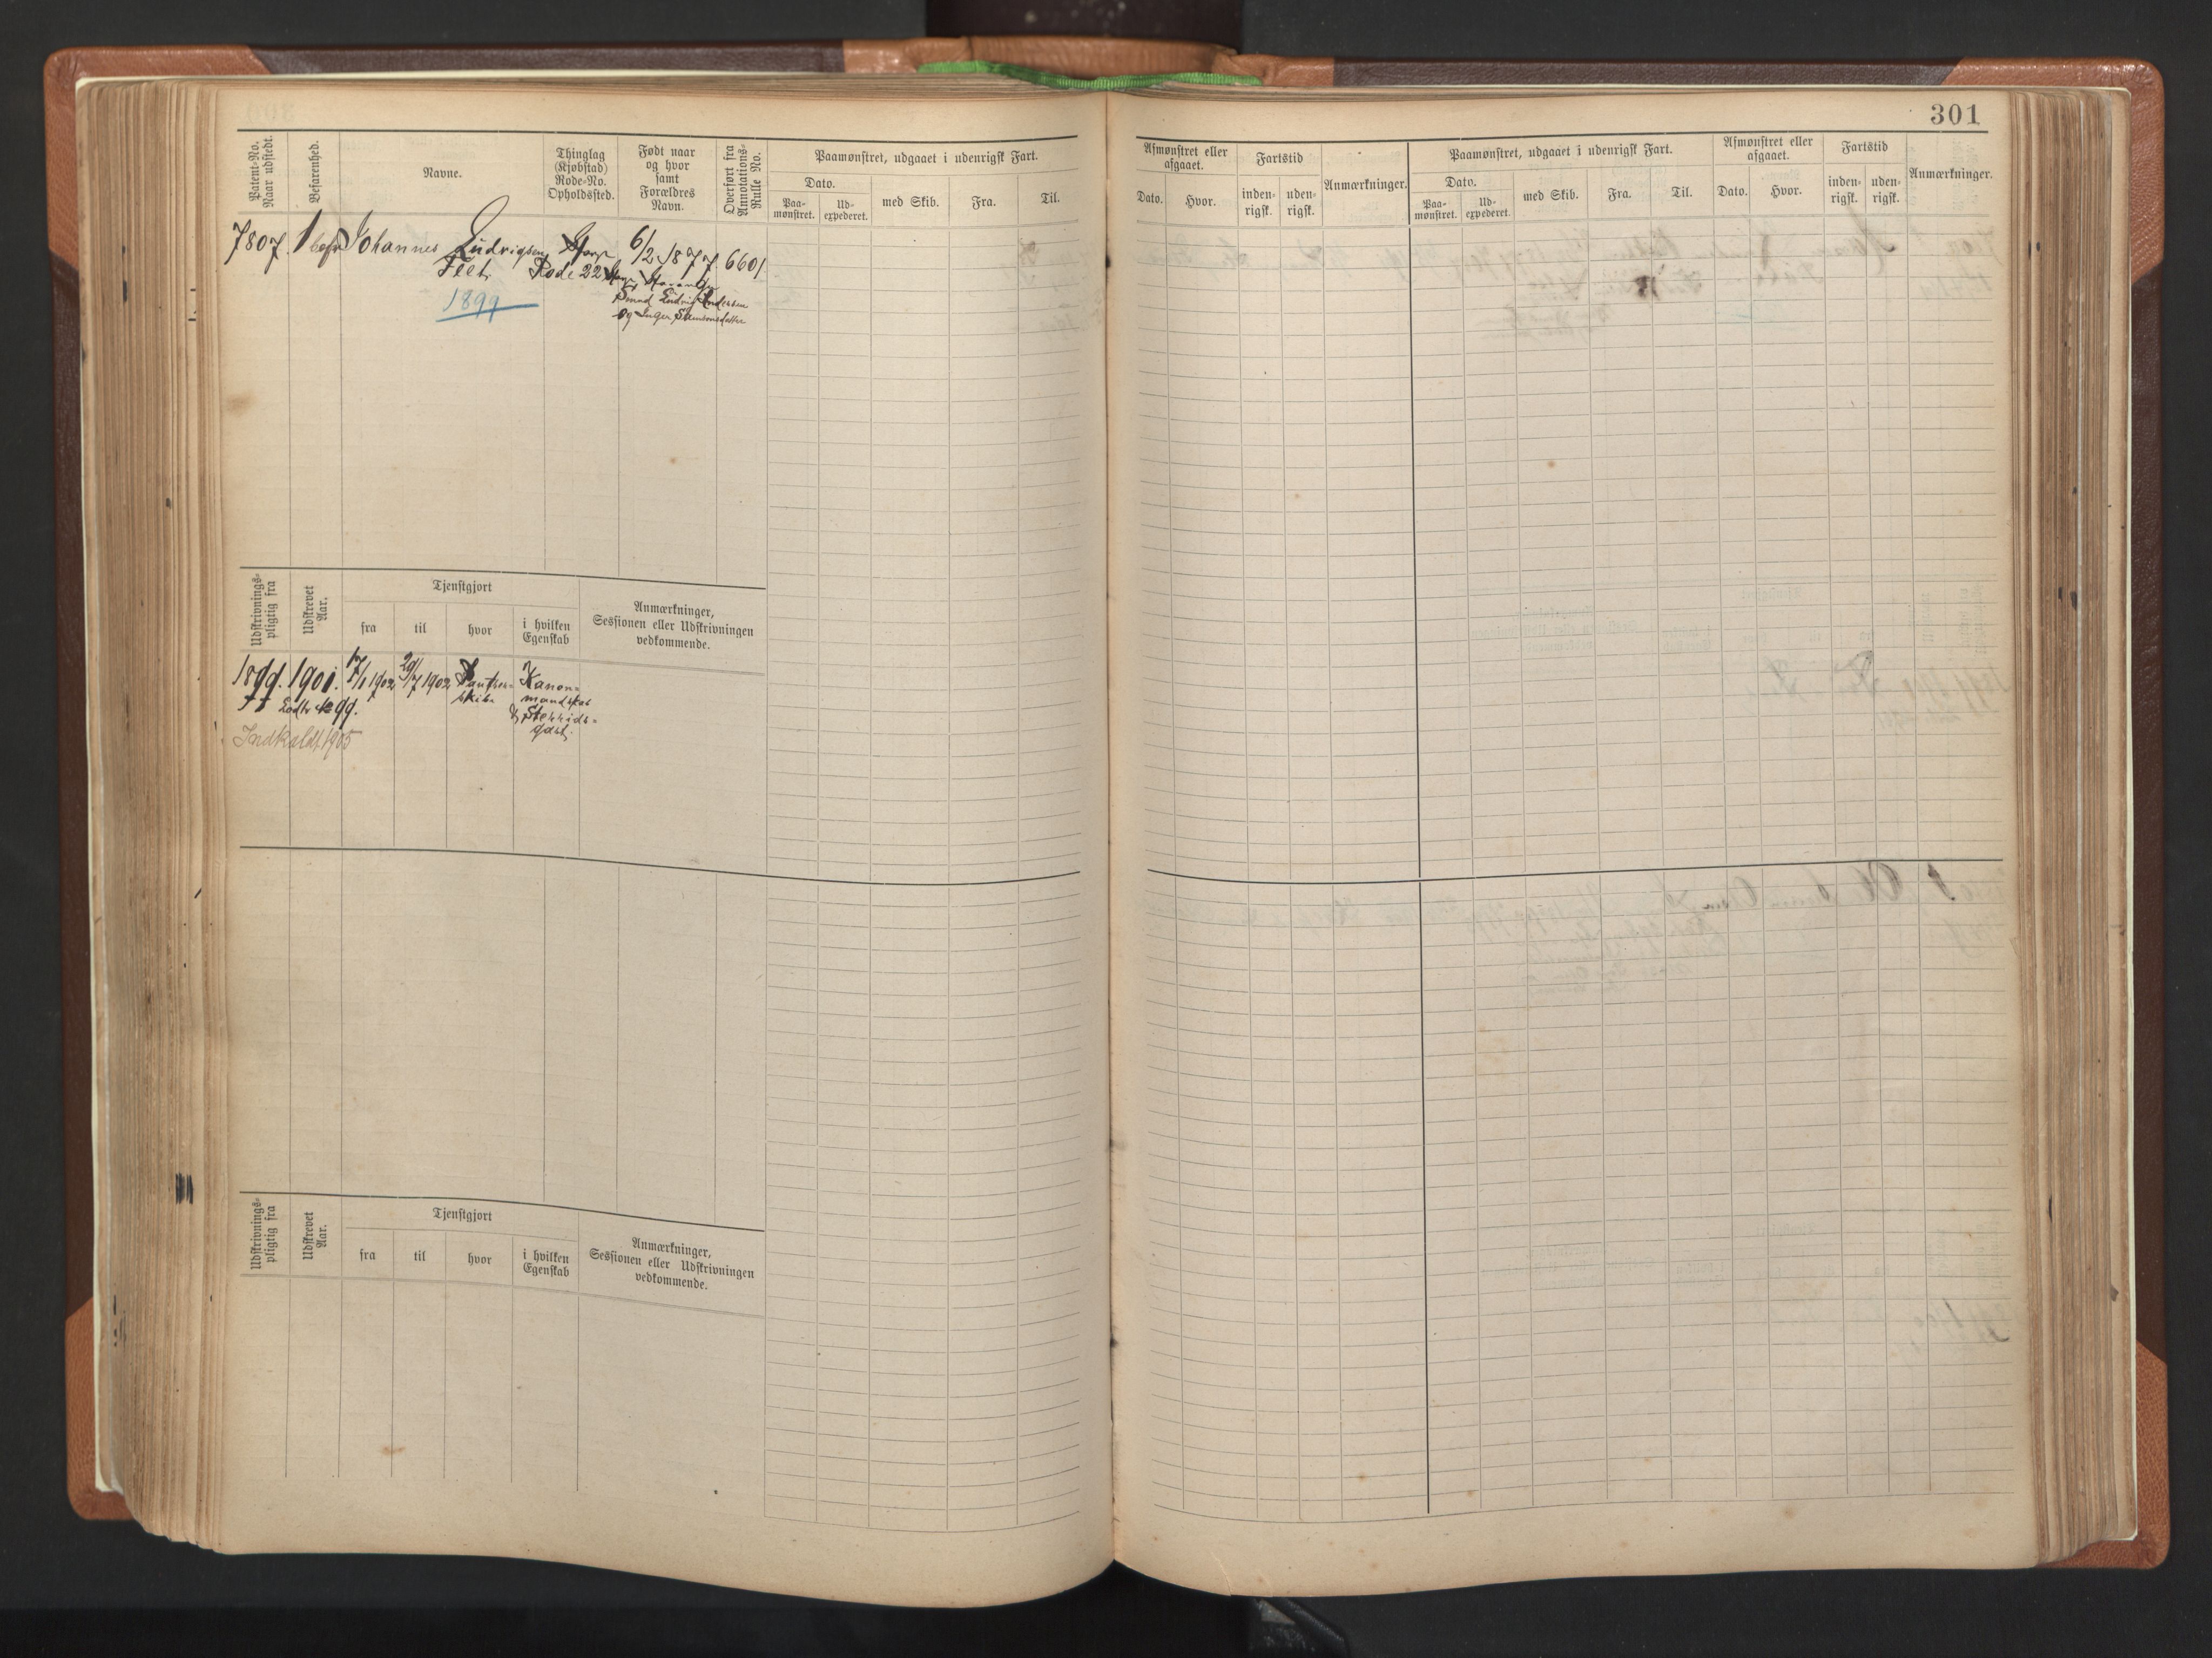 301
Patent-No.
Naar udstedt.
Befarenhed.
Navne.
Thinglag
(Kjøbstad)
Rode-No.
Opholdssted.
Født naar
og hvor
samt
Forældres
Navn.
Overført fra
Annotations-
Rulle No.
Paamønstret, udgaaet i udenrigsk Fart.
Dato.
Paa-
mønstret.
Ud-
expederet.
med Skib.
Fra.
Til.
Afmønstret eller
afgaaet.
Dato.
Hvor.
Fartstid
inden-
rigsk.
uden-
rigsk.
Anmærkninger.
Paamønstret, udgaaet i udenrigsk Fart.
Dato.
Paa-
mønstret.
Ud-
expederet.
med Skib.
Fra.
Til.
Afmønstret eller
afgaaet.
Dato.
Hvor.
Fartstid
inden-
rigsk.
uden-
rigsk.
Anmærkninger.
7807. 1 Johannes Ludrigsen 6/2 1877 6601
Rode 22
1899
Ludrig Andersen
og Inger Samsonsdatter
Udskrivnings-
pligtig fra
Udskrevet
Aar.
Tjenstgjort
fra
til
hvor
i hvilken
Egenskab
Anmærkninger,
Sessionen eller Udskrivningen
vedkommende.
1899. 1901. 17/1 1902 29/7 1902 Kanon-
mandskab
Lodtr № 99.
Indkaldt 1905
Udskrivnings-
pligtig fra
Udskrevet
Aar.
Tjenstgjort
fra
til
hvor
i hvilken
Egenskab
Anmærkninger,
Sessionen eller Udskrivningen
vedkommende.